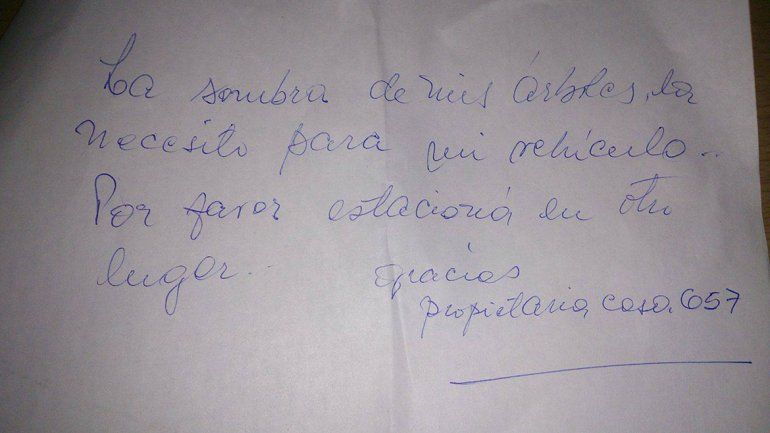 La sombra de mis árboles, la
necesito para mi vehículo..
Por favor estacioná en otro
lugar...
gracias
propietaria casa 657